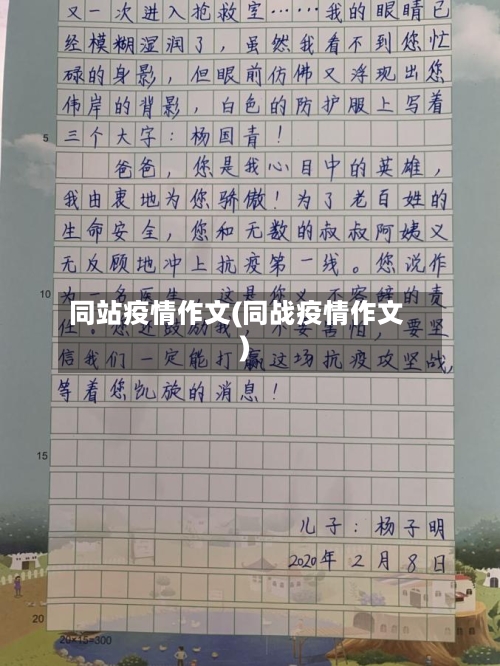 又一次进入抢救室……我的眼睛已
经模糊湿润了，虽然我看不到您忙
碌的身影，但眼前仿佛又浮现出您
伟岸的背影，白色的防护服上写着
5 三个大字：杨国青！
爸爸，您是我心目中的英雄，
我由衷地为您骄傲！为了老百姓的
生命安全，您和无数的叔叔阿姨义
无反顾地冲上抗疫第一线。您说作
10 为一名医生，这是您义不容辞的责
同站疫情作文(同战疫情作文
)
任。您还鼓励我，不要害怕，要坚
信我们一定能打赢这场抗疫攻坚战，
等着您凯旋的消息！
15
儿子：杨子明
2020年2月8日
20
20×15=300